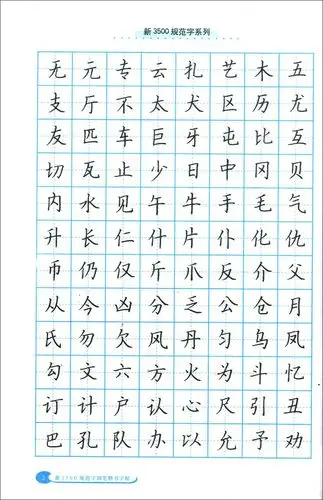 新3500规范字系列
无元专云扎艺木五
支厅不太犬区历尤
友匹车巨牙屯比互
切瓦止少日中冈贝
内水见午牛手毛气
升长仁什片仆化仇
币仍仅斤爪反介父
从今凶分乏公仓月
氏勿欠风丹匀乌凤
勾文六方火为斗忆
订计户认心尺引丑
巴孔队办以允予劝